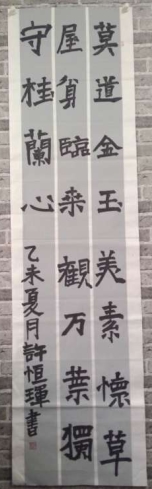 莫道金玉美素懷草
屋貧臨來觀万葉獨
守桂蘭心
乙未夏月許恒瑋書